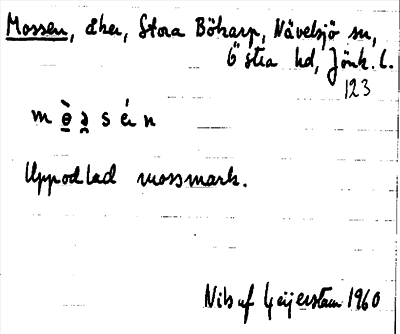 Mossen, åker, Stora Bökarp, Nävelsjö sn,
Östra hd, Jönk. l.
123
Uppodlad mossmark.
Nils af Geijerstam 1960